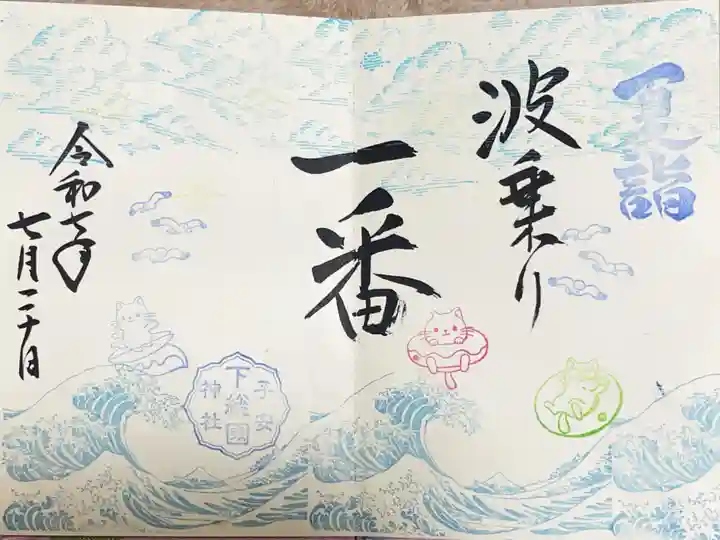 夏詣
波乗り
一番
令和七年
七月二十日
下総國
平安
神社